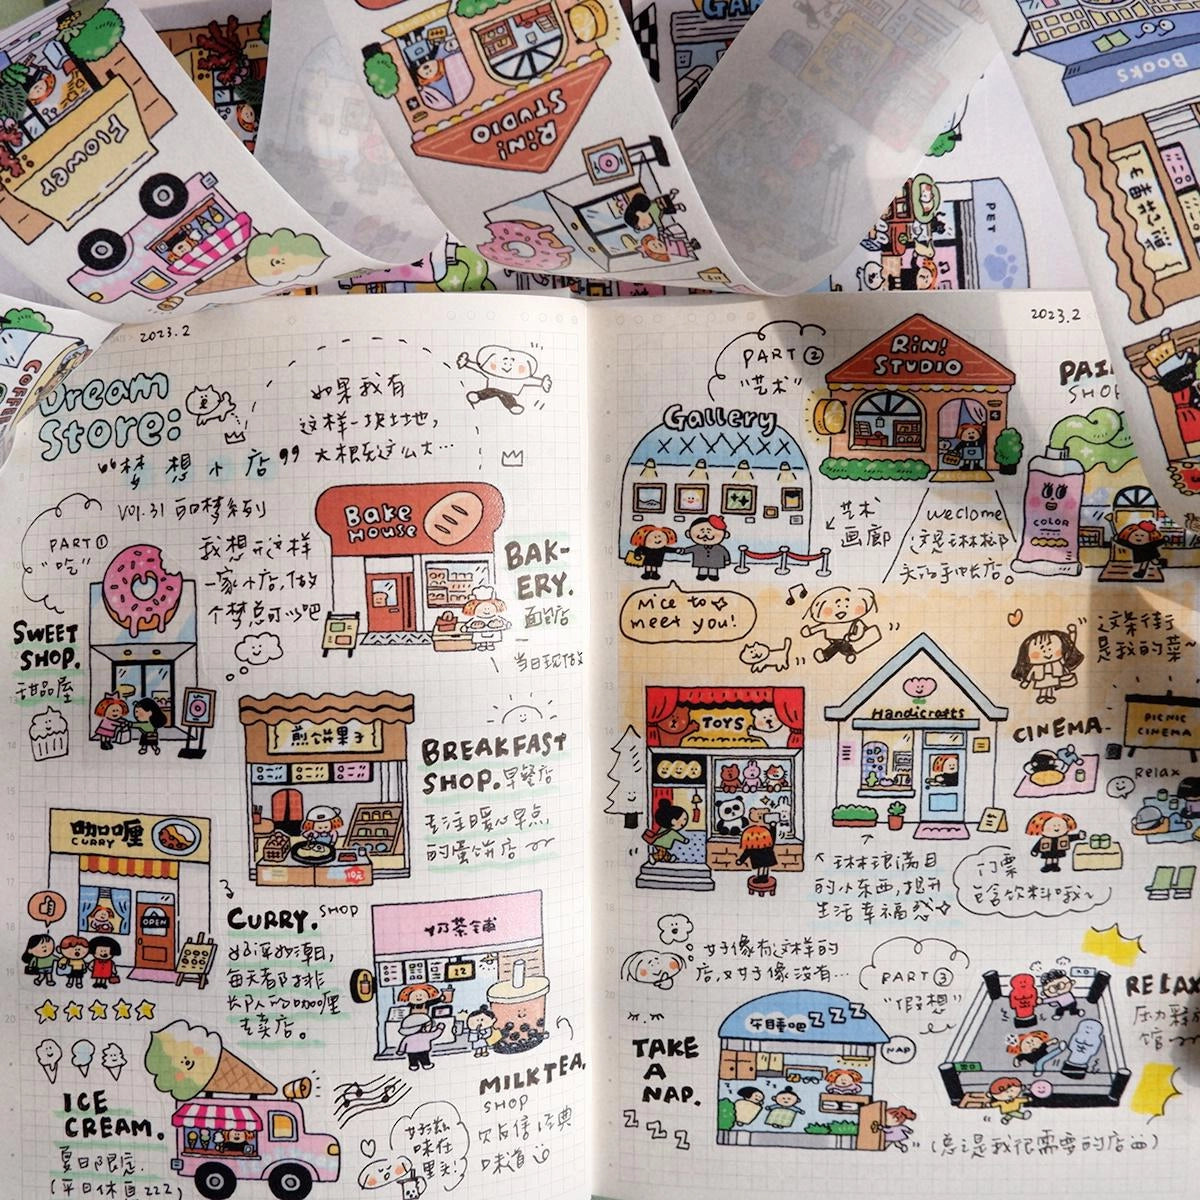 Flower
Rin!
STUDIO
PET
Books
COFFEE
2023.2
Dream
Store:
"梦想小店"
如果我有
这样一块土地，
大概有这么大…
PART①
"吃"
我想开这样
一家小店，做
个梦总可以吧
Bake
House
BAK-
ERY.
面包店
当日现做
SWEET
SHOP.
甜品屋
煎饼果子
BREAKFAST
SHOP. 早餐店
专注暖心早点
的蛋饼店
咖喱
CURRY
OPEN
CURRY. SHOP
好评如潮，
每天都排
长队的咖喱
专卖店。
奶茶铺
22
MILKTEA.
SHOP
味道
ICE
CREAM.
夏日限定.
(平日休息 zzz)
好滋
味在
里头!
2023.2
PART②
"艺术"
Rin!
STUDIO
PAI
SHOP
Gallery
艺术
画廊
weclome
这是琳琅
COLOR
Nice to
meet you!
这条街
是我的菜~
TOYS
Handicrafts
CINEMA.
PICNIC
CINEMA
Relax
琳琅满目
的小东西，提升
生活幸福感
门票
包含饮料哦~
好像有这样的
店，又好像没有…
PART③
"假想"
午睡吧 zzz
NAP
TAKE
A
NAP.
zzzz
RELAX
压力释放
馆
(总之是我很需要的店)